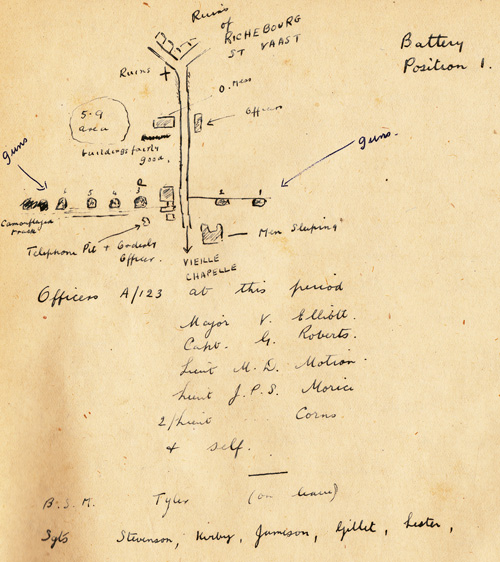 Ruins
of
RICHEBOURG
ST VAAST
Battery
Position 1.
Ruins
O. Mess
5.9
area
Officers
buildings fairly
good.
guns
guns.
6 5 4 3 2 1
Camouflaged
track
Men Sleeping
Telephone Pit + Orderly
Officer.
VIEILLE
CHAPELLE
Officers A/123 at this period
Major V. Elliott.
Capt. G. Roberts.
Lieut M. D. Motion.
Lieut J. P. S. Morice
2/Lieut Corns.
+ self.
B.S.M. Tyler (on leave)
Sgts Stevenson, Kirby, Jamieson, Gillet, Lester,